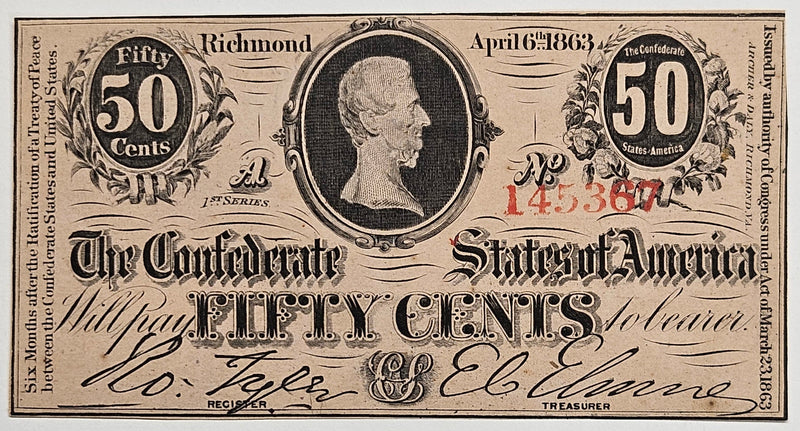 Six Months after the Ratification of a Treaty of Peace
between the Confederate States and United States.
Fifty
50
Cents
Richmond
April 6th 1863
The Confederate
50
States America
A
1ST SERIES.
No
145367
The Confederate States of America
Will pay FIFTY CENTS to bearer.
Ro. Tyler
REGISTER
CS
E C Elmore
TREASURER
ARCHER & DALY, RICHMOND, VA.
Issued by authority of Congress under Act of March 23, 1863